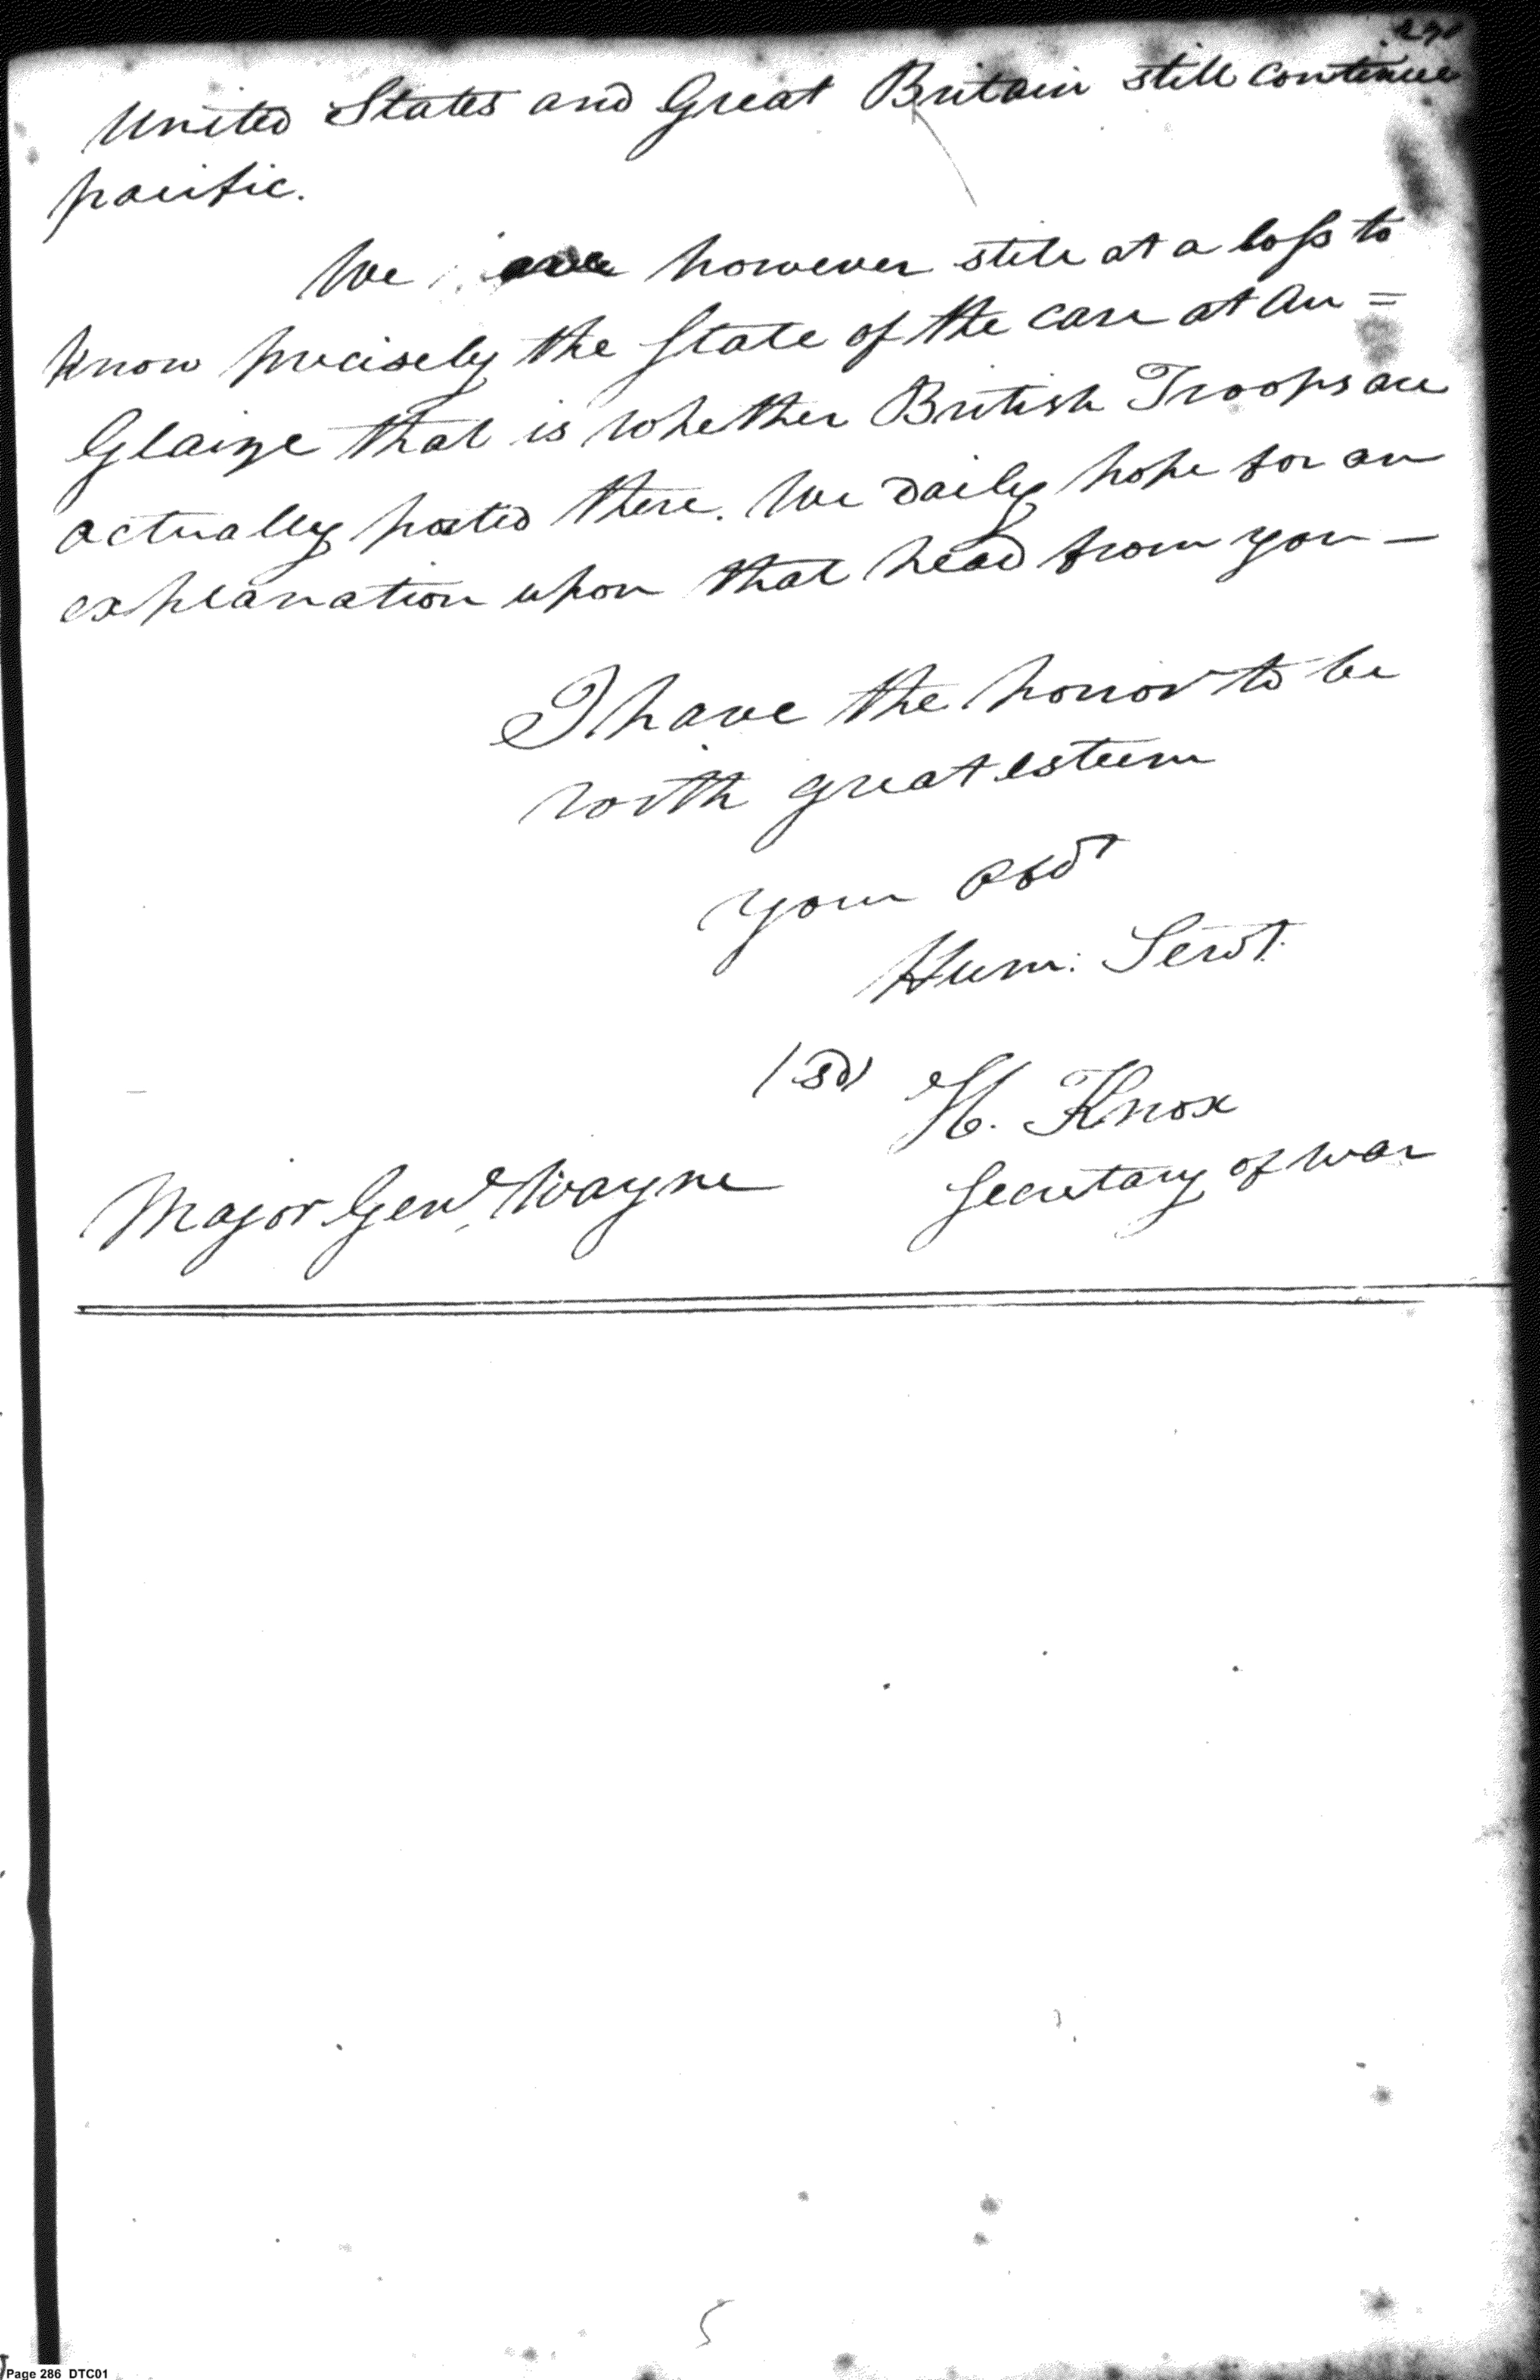 United States and Great Britain still continue
pacific.
We are however still at a loss to
know precisely the State of the case at Au =
Glaize that is whether British Troops are
actually posted there. We daily hope for an
explanation upon that head from you —
I have the honor to be
with great esteem
your Obdt
Hum: Servt.
(sd) H. Knox
Secretary of War
Major Genl. Wayne
5
Page 286 DTC01